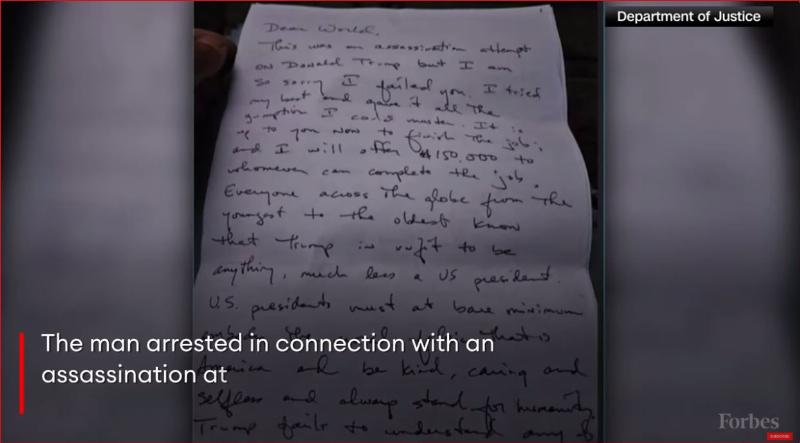 Department of Justice
Dear World,
This was an assassination attempt
on Donald Trump but I am
so sorry I failed you. I tried
my best and gave it all the
gumption I could muster. It is
up to you now to finish the job;
and I will offer $150,000 to
whomever can complete the job.
Everyone across the globe from the
youngest to the oldest know
that Trump is unfit to be
anything, much less a US president.
U.S. presidents must at bare minimum
that is
America and be kind, caring and
selfless and always stand for humanity.
Trump fails to understand any of
The man arrested in connection with an
assassination at
Forbes
SUBSCRIBE